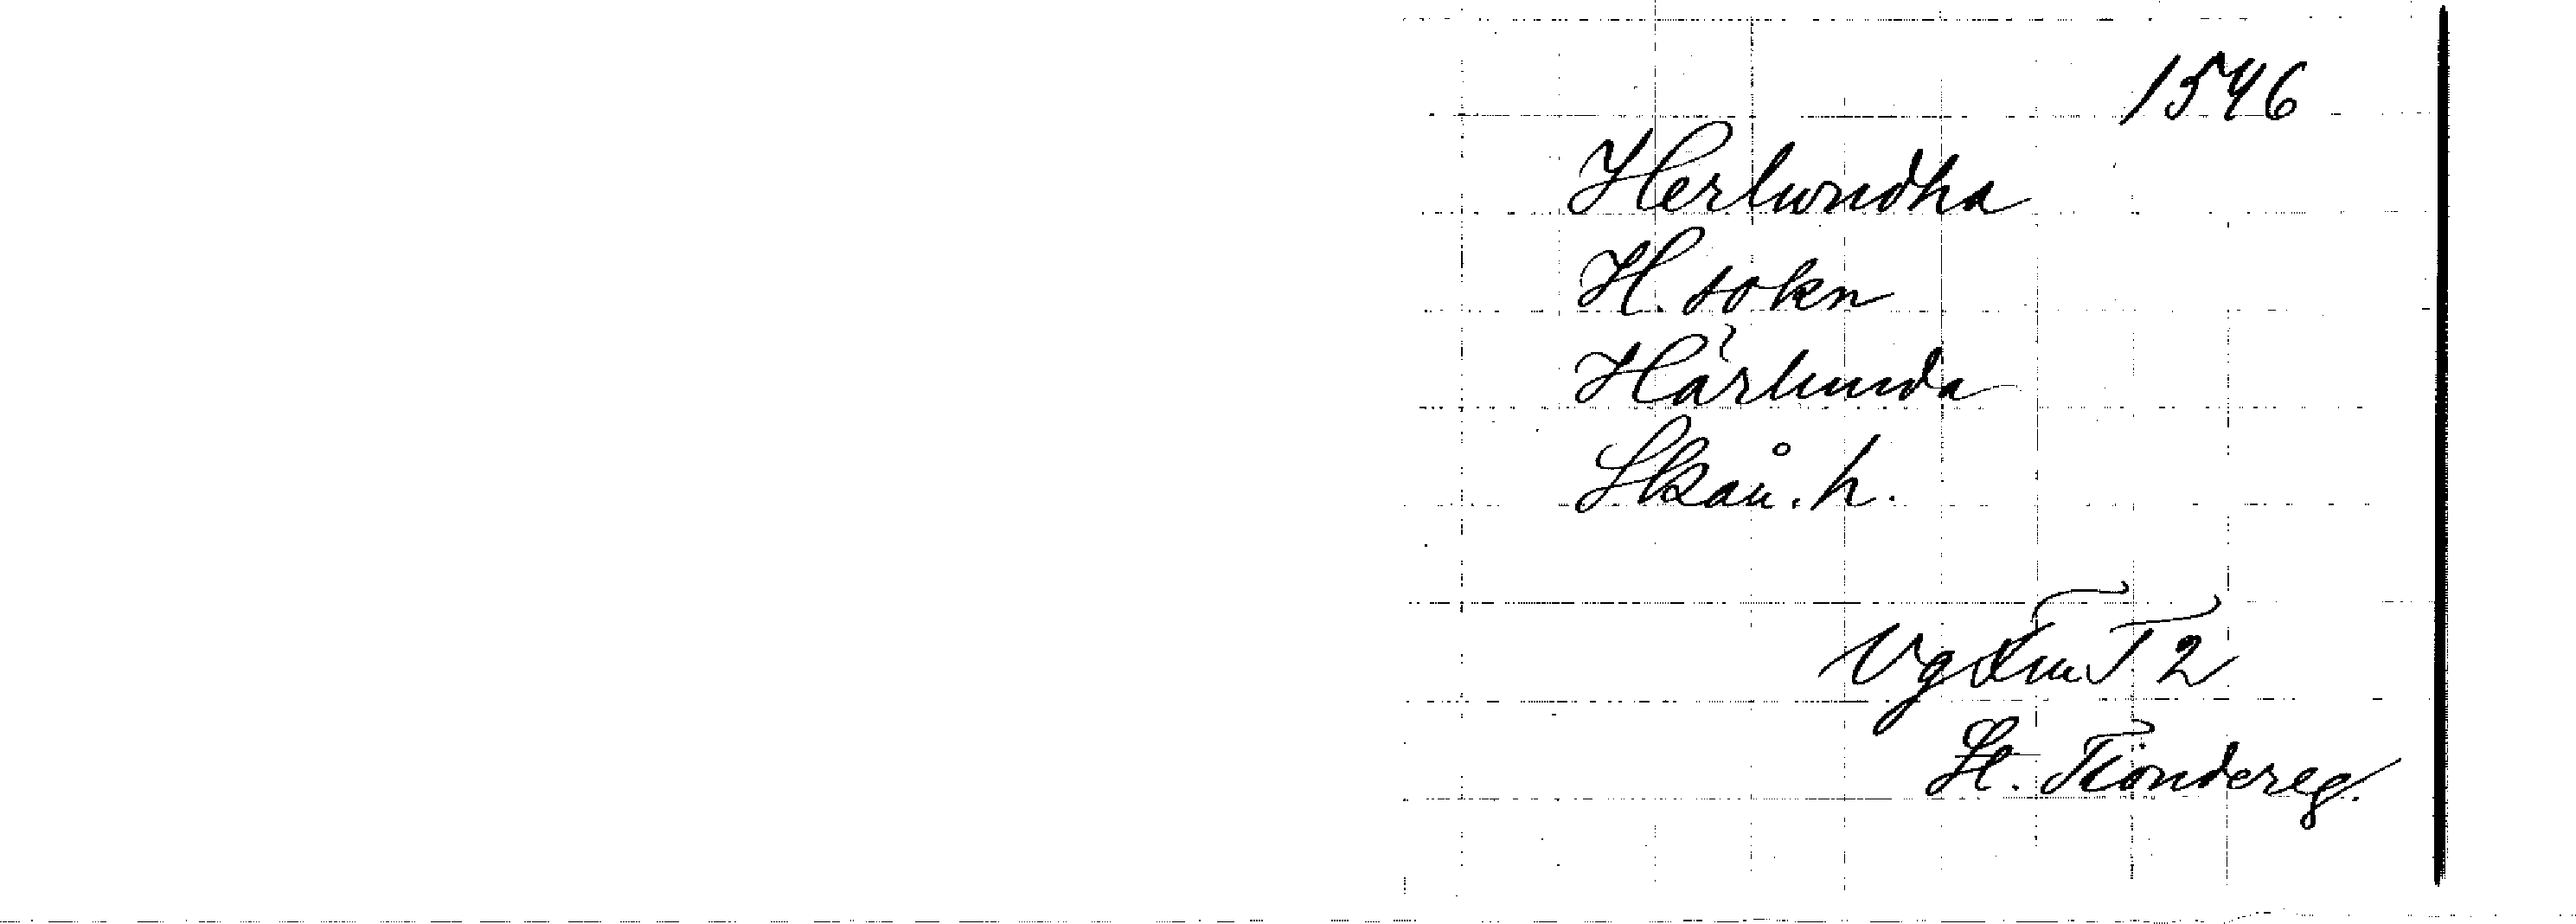 1546
Herlundha
H. sokn
Härlunda
Skån. h.
Vg Tr 2
St. Tiondereg.